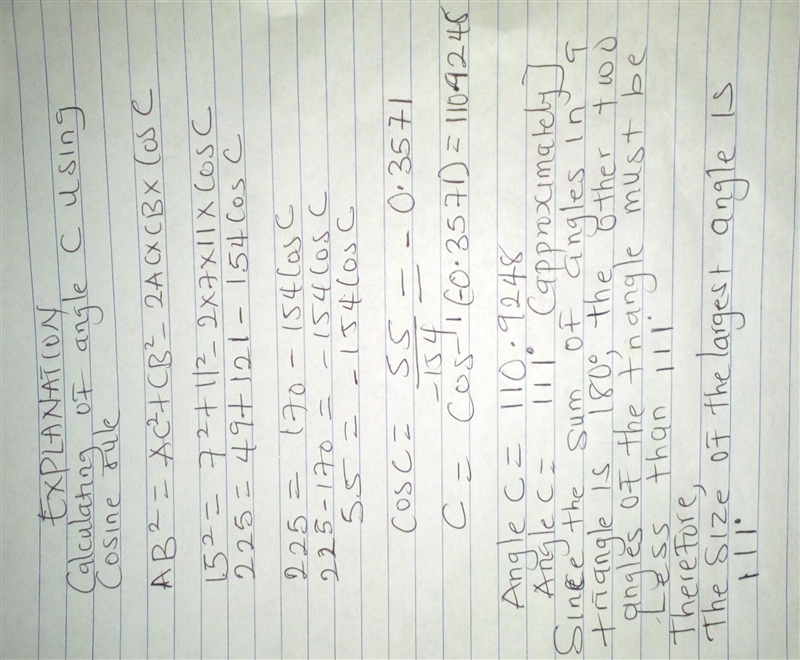 EXPLANATION
Calculating of angle C using
Cosine rule
AB² = AC² + CB² - 2AC×CB× Cos C
15² = 7² + 11² - 2×7×11× Cos C
225 = 49 + 121 - 154 Cos C
225 = 170 - 154 Cos C
225 - 170 = -154 Cos C
55 = -154 Cos C
Cos C = 55/-154 = -0.3571
C = Cos⁻¹(-0.3571) = 110.9248
Angle C = 110.9248
Angle C = 111° (approximately)
Since the sum of angles in a
triangle is 180°, the other two
angles of the triangle must be
Less than 111°
Therefore,
The size of the largest angle is
111°